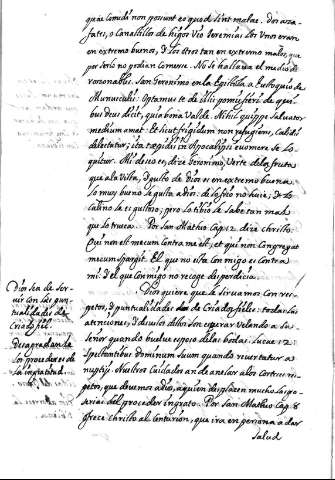 quia Comedi non possunt eo quod sint malae. Dos aza-
fates, o Canastillos de higos vio Jeremias: los Unos eran
en extremo buenos, y los otros tan en extremo malos, que
por serlo no podian Comerse. No se hallava el medio de
razonables. San Geronimo en la Epistola a Eustoquio de
Munusculis: Optamus te de illis pomis fieri de qui-
bus Deus dicit, quia bona valde. Nihil quippe Salvator
medium amat. Et sicut frigidum non refugiens, Calidis
delectatur; ita tepidos in Apocalipsi evomere se lo-
quitur. Mi deseo es, dize Geronimo, Verte de la fruta
que a la Vista, y gusto de Dios es en extremo buena.
lo muy bueno le gusta a Dios: de lo frio no huie; y de lo
Calido se es gustoso; pero lo tibio le sabe tan mal
que lo trueca. Por San Matheo Cap. 12 dize christo:
Qui non est mecum contra me est, et qui non Congregat
mecum Spargit. El que no esta Conmigo es contra
mi: y el que Conmigo no recoge desperdicia.
Dios quiere que le sirvamos Con ver-
getos, y puntualidades de Criados fieles: todas las
atenciones, y desvelos
Señor quando buelve de las bodas. Lucae 12:
Spectantibus dominum suum quando revertatur a
nuptijs. Nuestros Cuidados an de anelar a los
que devemos a Dios, a quien desplazen mucho las
del proceder ingrato. Por San Matheo Cap. 8
ofrece christo al Centurion, que ira en persona a dar
Salud
Dios sea de Ser-
vir Con las pun-
tualidades de
Criado fiel.
Desagradan le
los procederes de
la ingratitud.